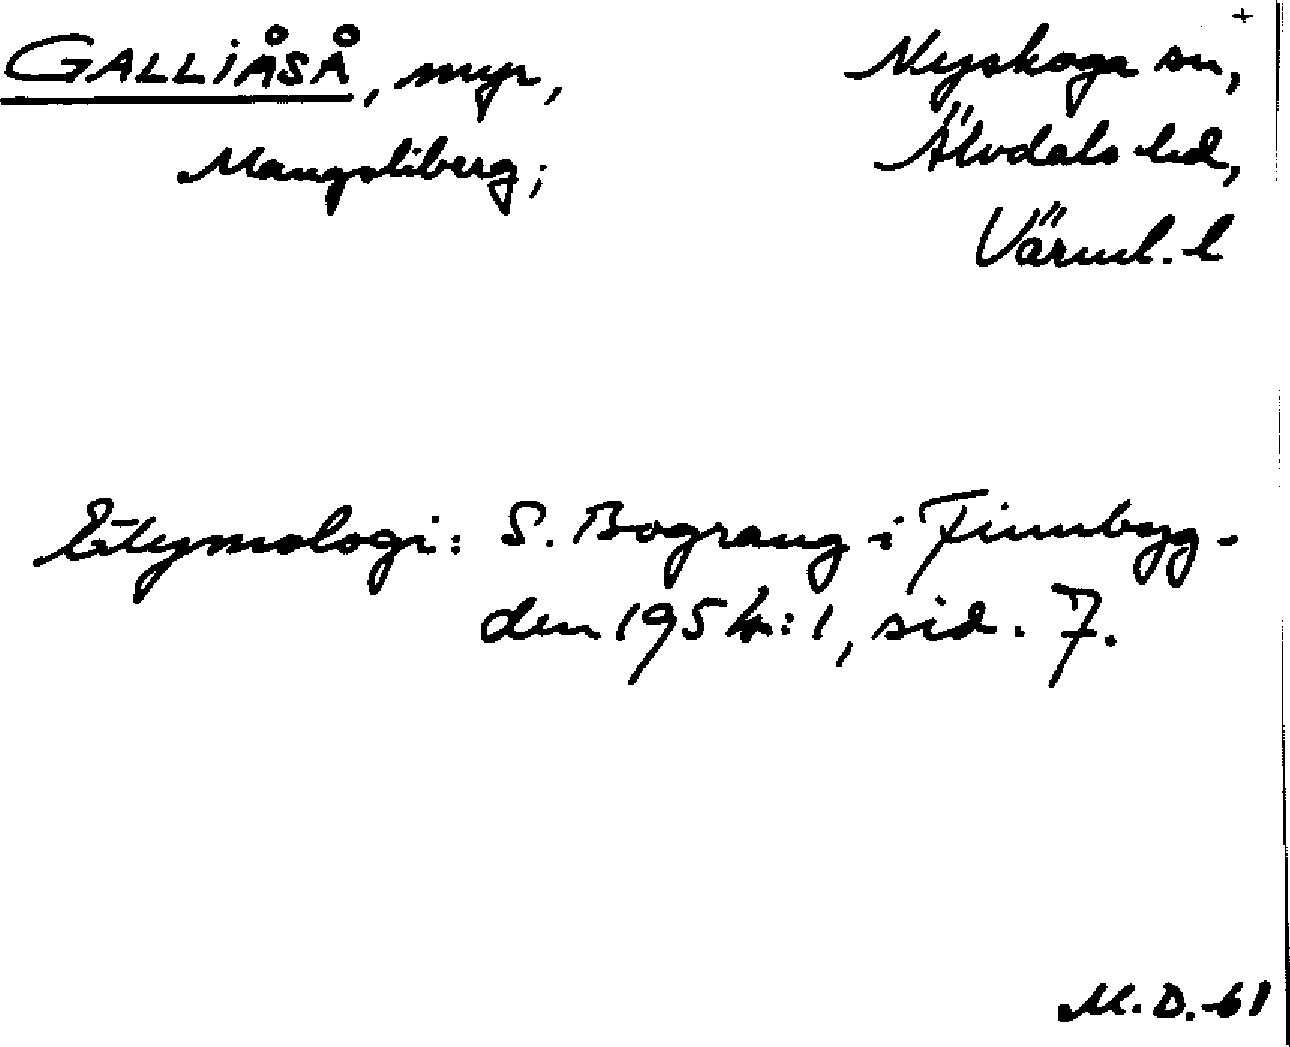 +
GALLIÅSÅ, myr,
Nyskoga sn,
Mangsliberg;
Älvdals hd,
Värml. l
Etymologi: S. Bograng i Finnbyg-
den 1954:1, sid. 7.
M.D. 61